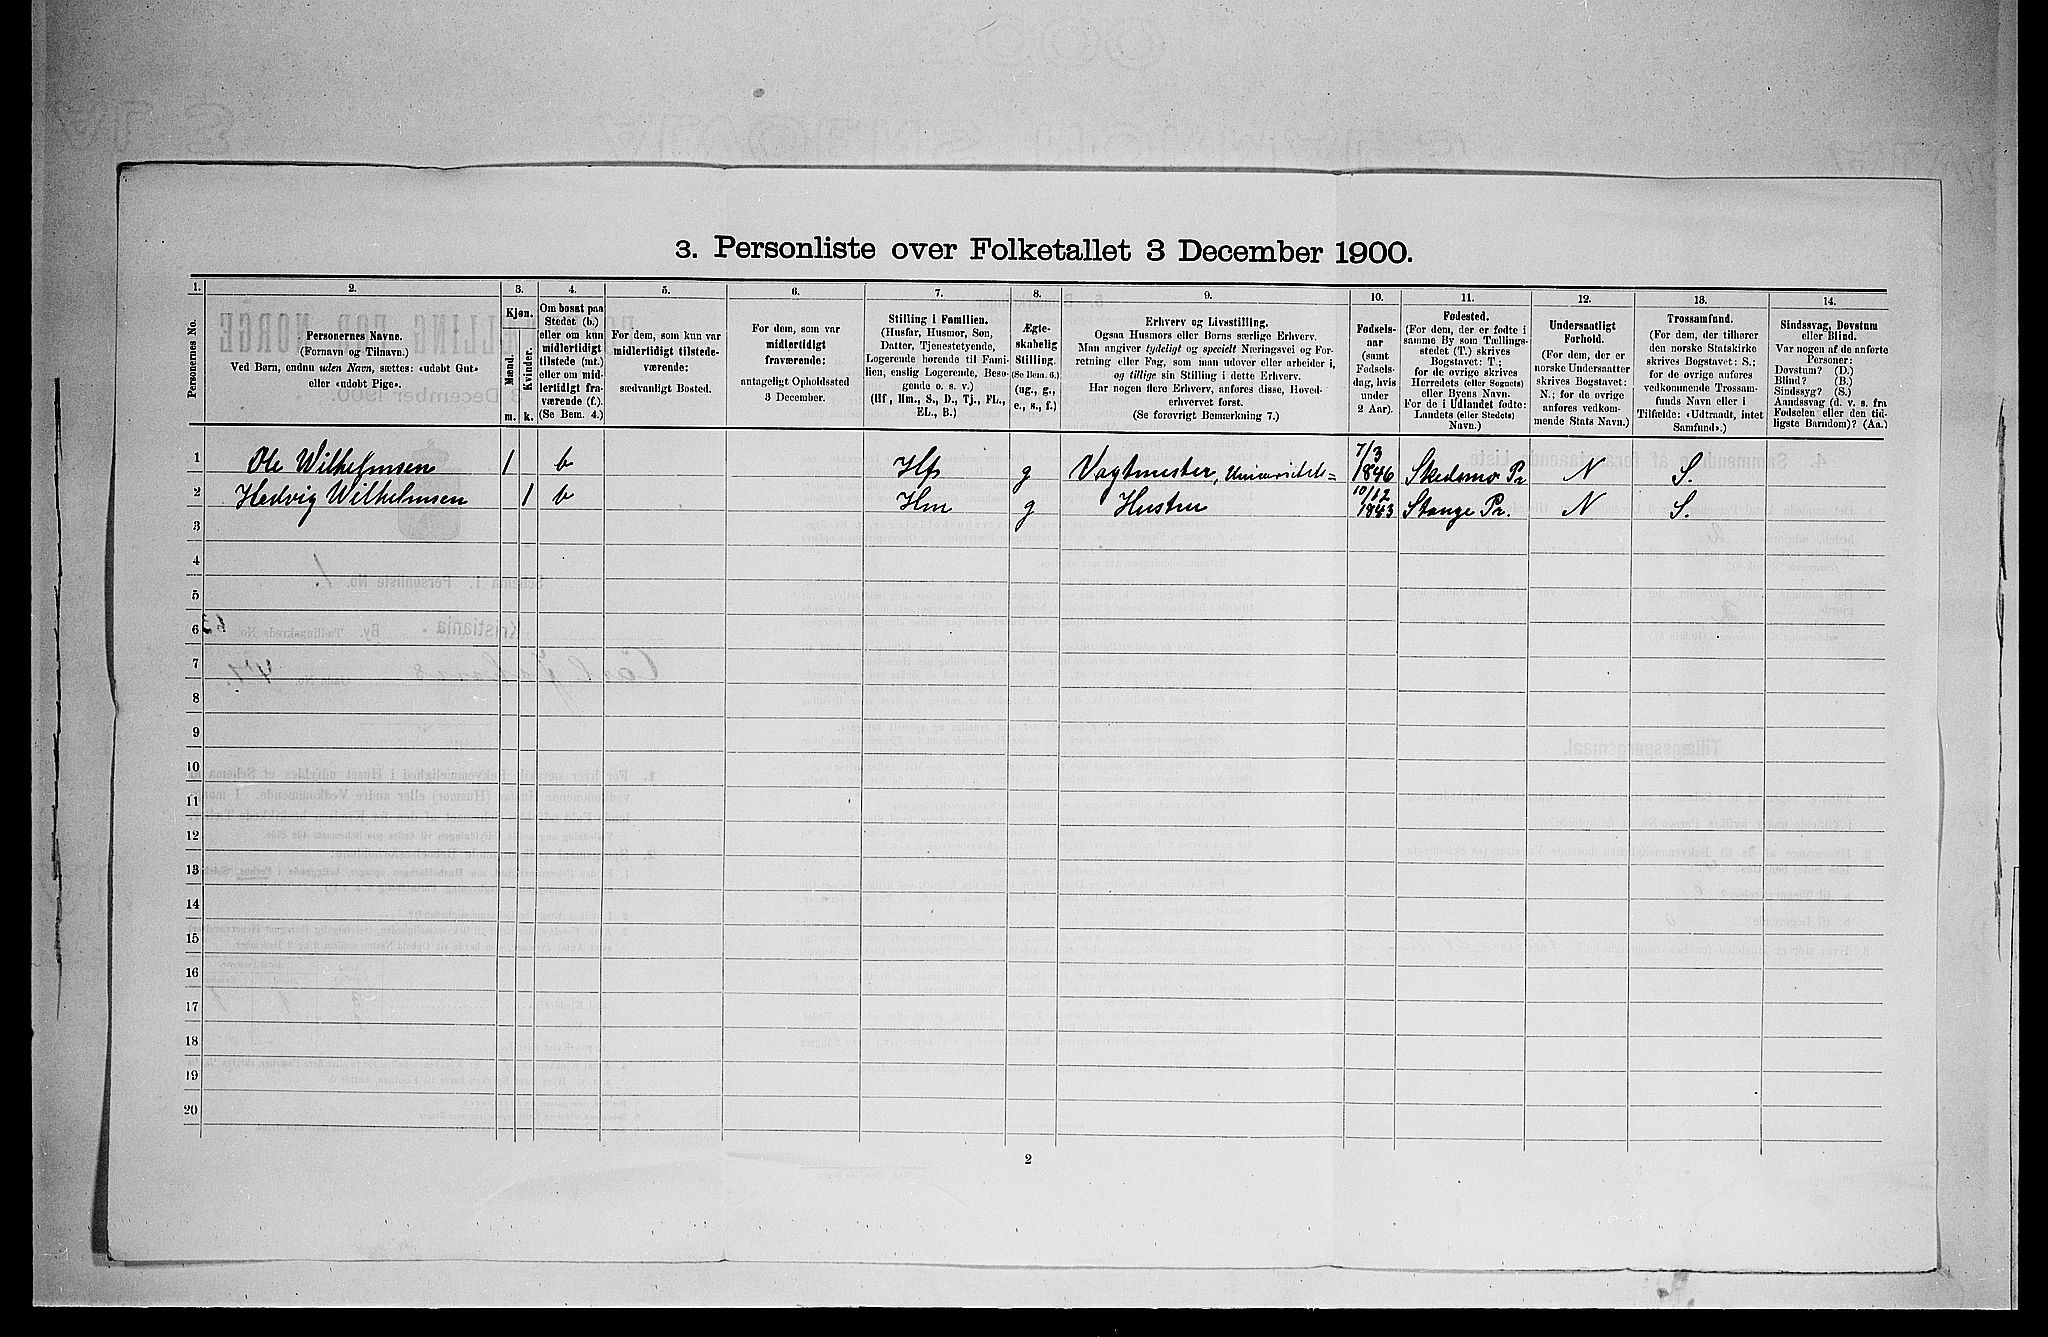 3. Personliste over Folketallet 3 December 1900.
1. 2. 3. 4. 5. 6. 7. 8. 9. 10. 11. 12. 13. 14.
Personernes No.
Personernes Navne.
(Fornavn og Tilnavn.)
Ved Børn, endnu uden Navn, sættes: «udøbt Gut»
eller «udøbt Pige».
Kjøn.
Mænd.
Kvinder.
m. k.
Om bosat paa
Stedet (b.)
eller om kun
midlertidigt
tilstede (mt.)
eller om mid-
lertidigt fra-
værende (f.).
(Se Bem. 4.)
For dem, som kun var
midlertidigt tilstede-
værende:
sædvanligt Bosted.
For dem, som var
midlertidigt
fraværende:
antageligt Opholdssted
3 December.
Stilling i Familien.
(Husfar, Husmor, Søn,
Datter, Tjenestetyende,
Logerende hørende til Fami-
lien, enslig Logerende, Besø-
gende o. s. v.)
(Hf, Hm., S., D., Tj., FL.,
EL., B.)
Ægte-
skabelig
Stilling.
(Se Bem. 6.)
(ug., g.,
e., s., f.)
Erhverv og Livsstilling.
Ogsaa Husmors eller Børns særlige Erhverv.
Man angiver tydeligt og specielt Næringsvei og For-
retning eller Fag, som man udøver eller arbeider i,
og tillige sin Stilling i dette Erhverv.
Har nogen flere Erhverv, anføres disse, Hoved-
erhvervet først.
(Se forøvrigt Bemærkning 7.)
Fødsels-
aar
(samt
Fødsels-
dag, hvis
under
2 Aar).
Fødested.
(For dem, der er fødte i
samme By som Tællings-
stedet (T.) skrives
Bogstavet: T.;
for de øvrige skrives
Herredets (eller Sognets)
eller Byens Navn.
For de i Udlandet fødte:
Landets (eller Stedets)
Navn.)
Undersaatligt
Forhold.
(For dem, der er
norske Undersaatter
skrives Bogstavet:
N.; for de øvrige
anføres vedkom-
mende Stats Navn.)
Trossamfund.
(For dem, der tilhører
den norske Statskirke
skrives Bogstavet: S.;
for de øvrige anføres
vedkommende Trossam-
funds Navn eller i
Tilfælde: «Udtraadt, intet
Samfund».)
Sindssvag, Døvstum
eller Blind.
Var nogen af de anførte
Personer:
Døvstum? (D.)
Blind? (B.)
Sindssyg? (S.)
Aandssvag (d. v. s. fra
Fødselen eller den tid-
ligste Barndom)? (Aa.)
1 Ole Wilhelmsen 1 b Hf g Vagtmester, Universitets= 7/3 1846 Skedsmo Pr N S.
2 Hedvig Wilhelmsen 1 b Hm g Hustru 10/12 1843 Stange Pr. N S.
3
4
5
6
7
8
9
10
11
12
13
14
15
16
17
18
19
20
2